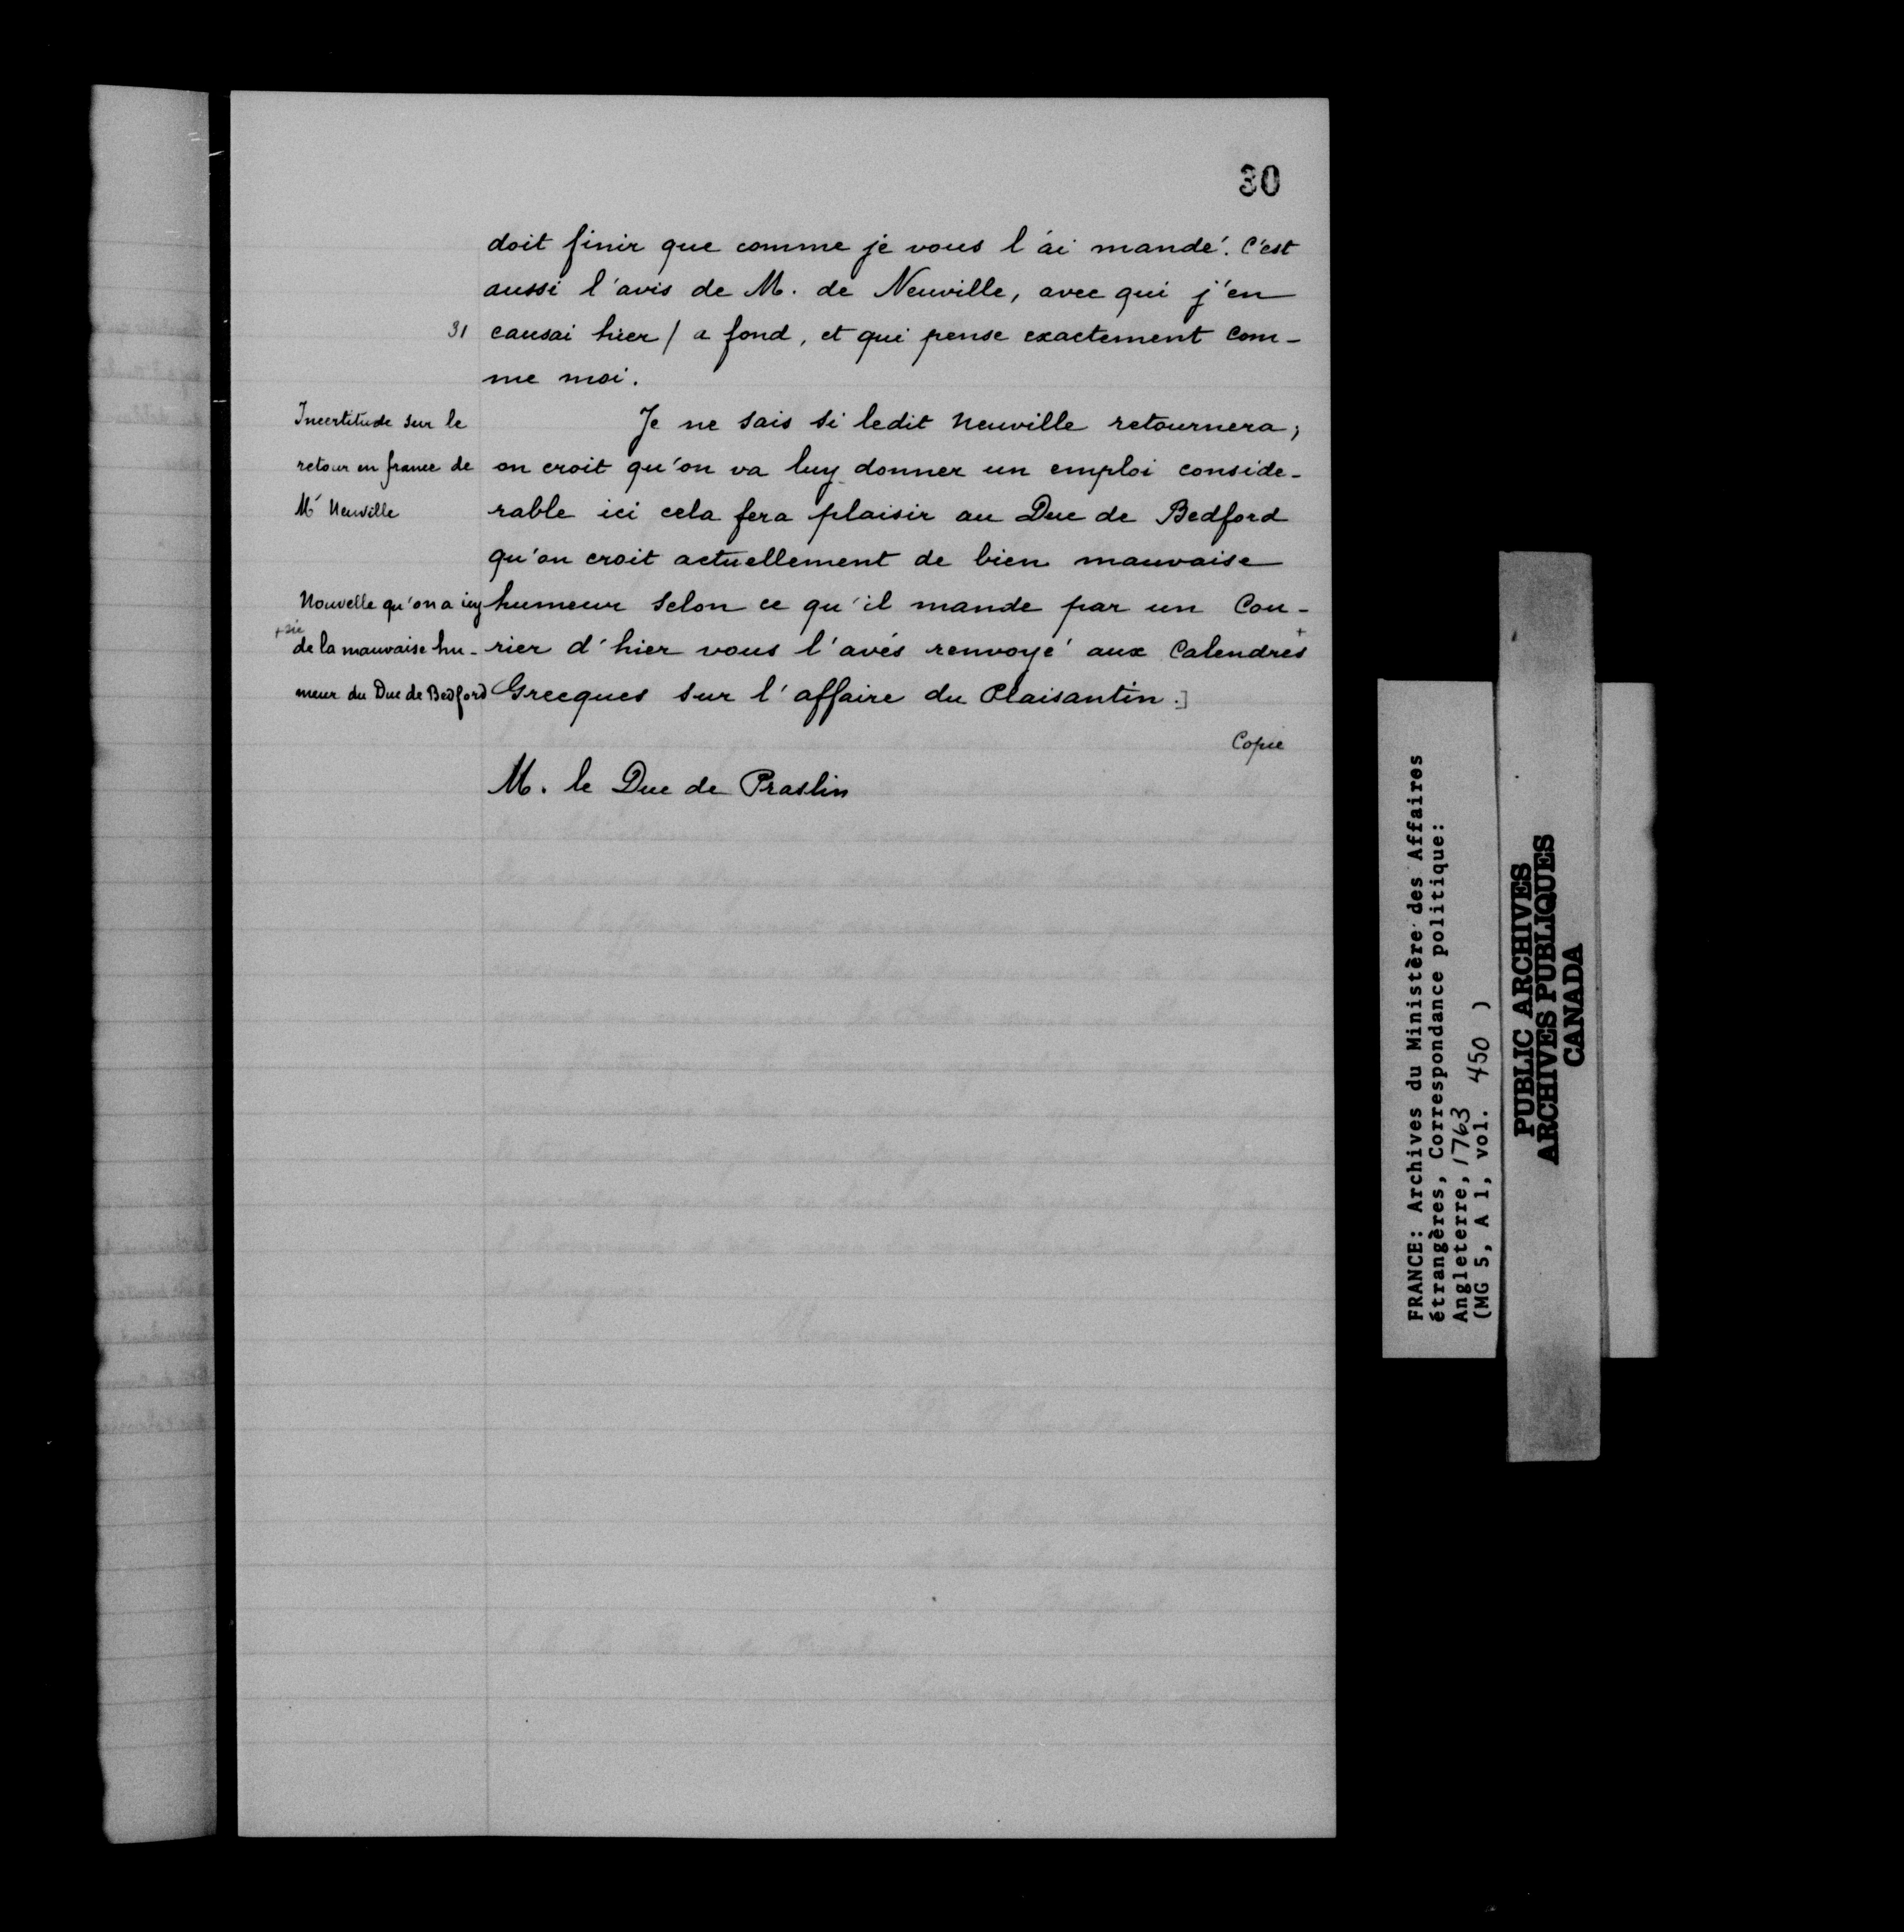 30
doit finir que comme je vous l'ai mandé. C'est
aussi l'avis de M. de Neuville, avec qui j'en
31 causai hier / a fond, et qui pense exactement com-
me moi.
Incertitude sur le
retour en france de
Mr Neuville
Je ne sais si ledit Neuville retournera;
on croit qu'on va luy donner un emploi conside-
rable ici cela fera plaisir au Duc de Bedford
qu'on croit actuellement de bien mauvaise
Nouvelle qu'on a icy
+ sic
de la mauvaise hu-
meur du Duc de Bedford
humeur selon ce qu'il mande par un Cou-
rier d'hier vous l'avés renvoyé aux Calendres +
Grecques sur l'affaire du Plaisantin.]
Copie
M. le Duc de Praslin
FRANCE: Archives du Ministère des Affaires
étrangères, Correspondance politique:
Angleterre, 1763
(MG 5, A 1, vol. 450 )
PUBLIC ARCHIVES
ARCHIVES PUBLIQUES
CANADA